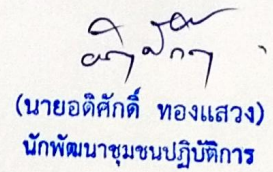 (นายอดิศักดิ์ ทองแสวง)
นักพัฒนาชุมชนปฏิบัติการ